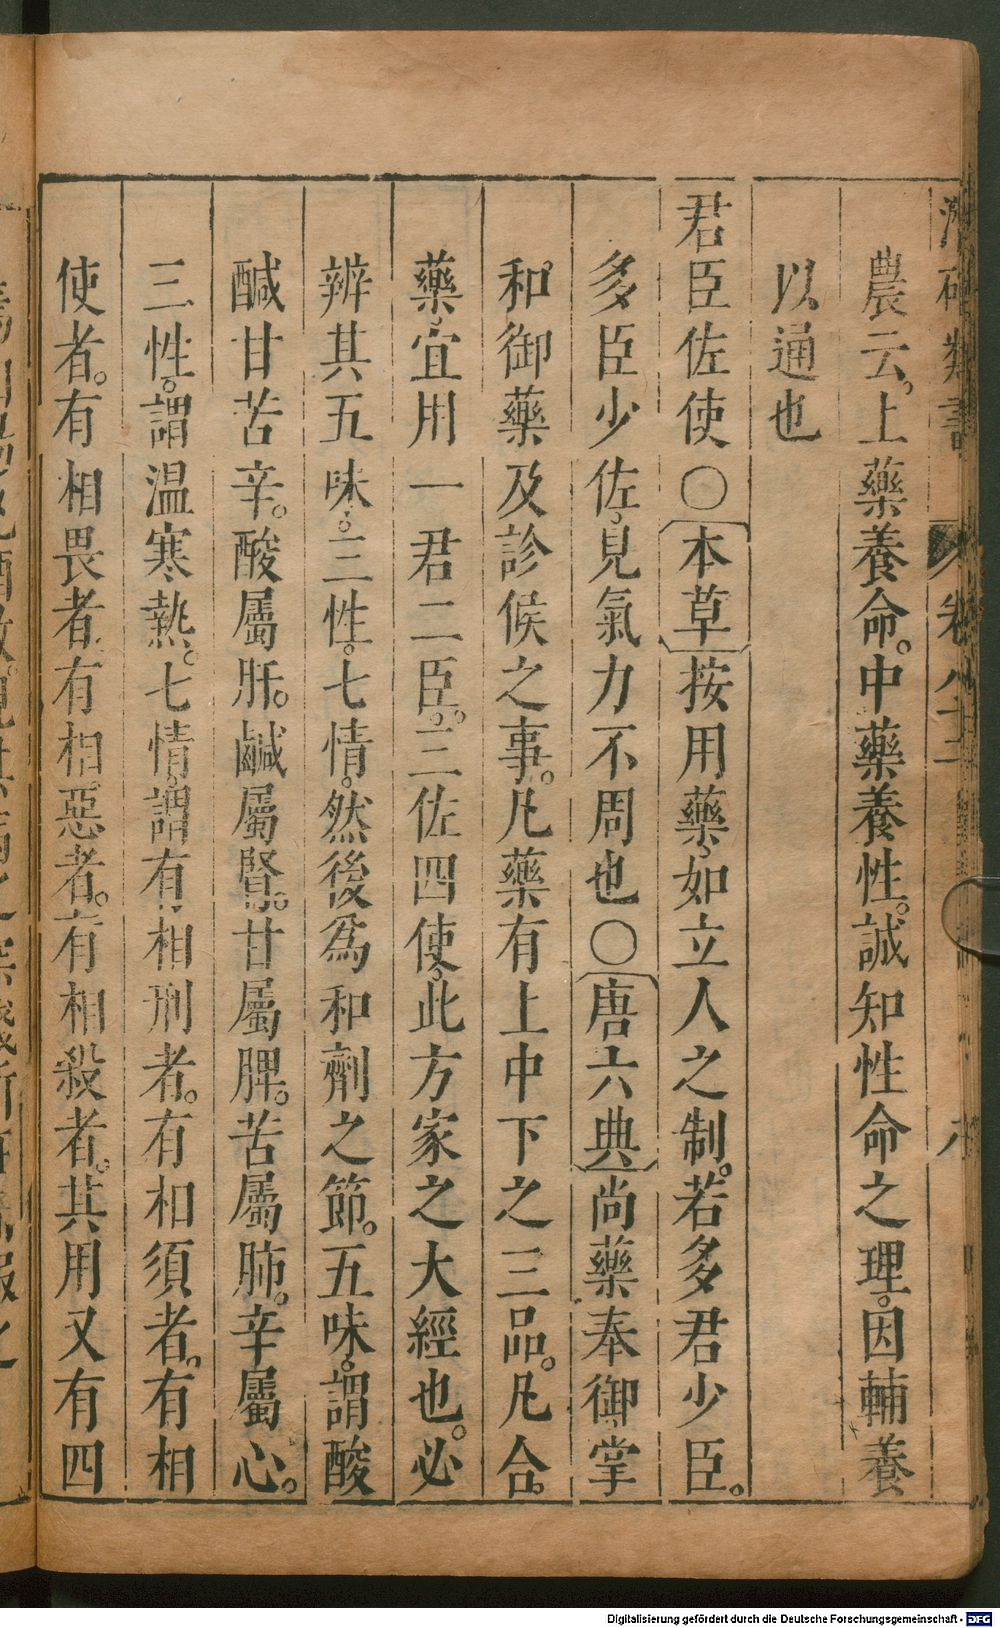 農云。上藥養命。中藥養性。誠知性命之理。因輔養
以通也
君臣佐使〇本草按用藥。如立人之制。若多君少臣。
多臣少佐。見氣力不周也〇唐六典尚藥奉御掌
和御藥及診候之事。凡藥有上中下之三品。凡合
藥。宜用一君二臣。三佐四使。此方家之大經也。必
辨其五味。三性。七情。然後爲和劑之節。五味。謂酸
醎甘苦辛。酸屬肝。鹹屬腎。甘屬脾。苦屬肺。辛屬心。
三性。謂温寒熱。七情。謂有相刑者。有相須者。有相
使者。有相畏者。有相惡者。有相殺者。其用又有四
Digitalisierung gefördert durch die Deutsche Forschungsgemeinschaft - DFG